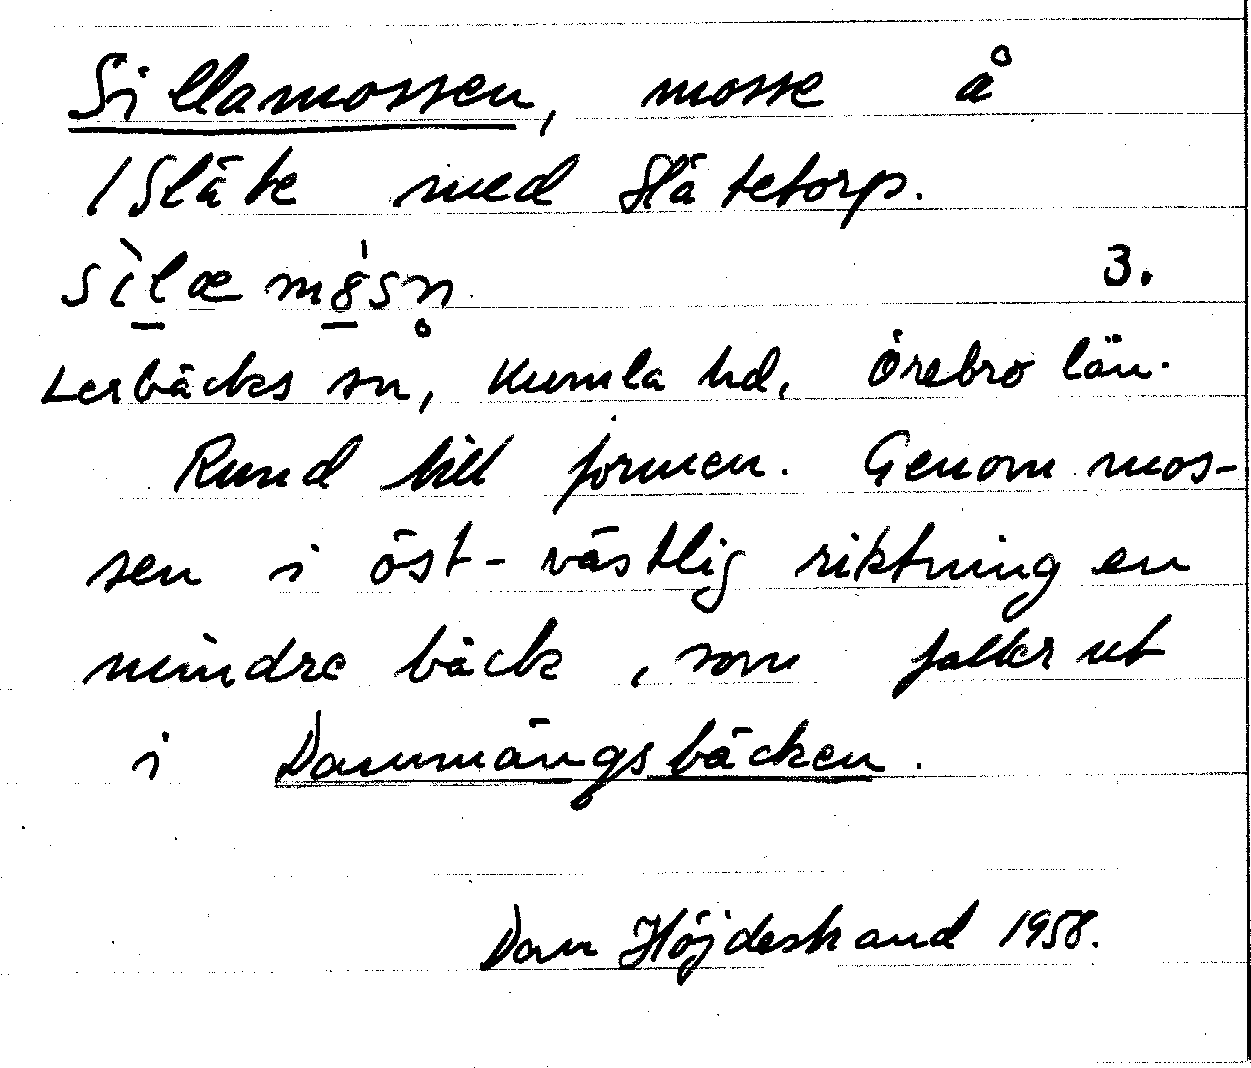 Sillamossen, mosse å
1 Släte med Slätetorp.
sìlæ mósn̥ 3.
Lerbäcks sn, Kumla hd, Örebro län.
Rund till formen. Genom mos-
sen i öst-västlig riktning en
mindre bäck, som faller ut
i Dammängsbäcken.
Dan Höjdestrand 1958.